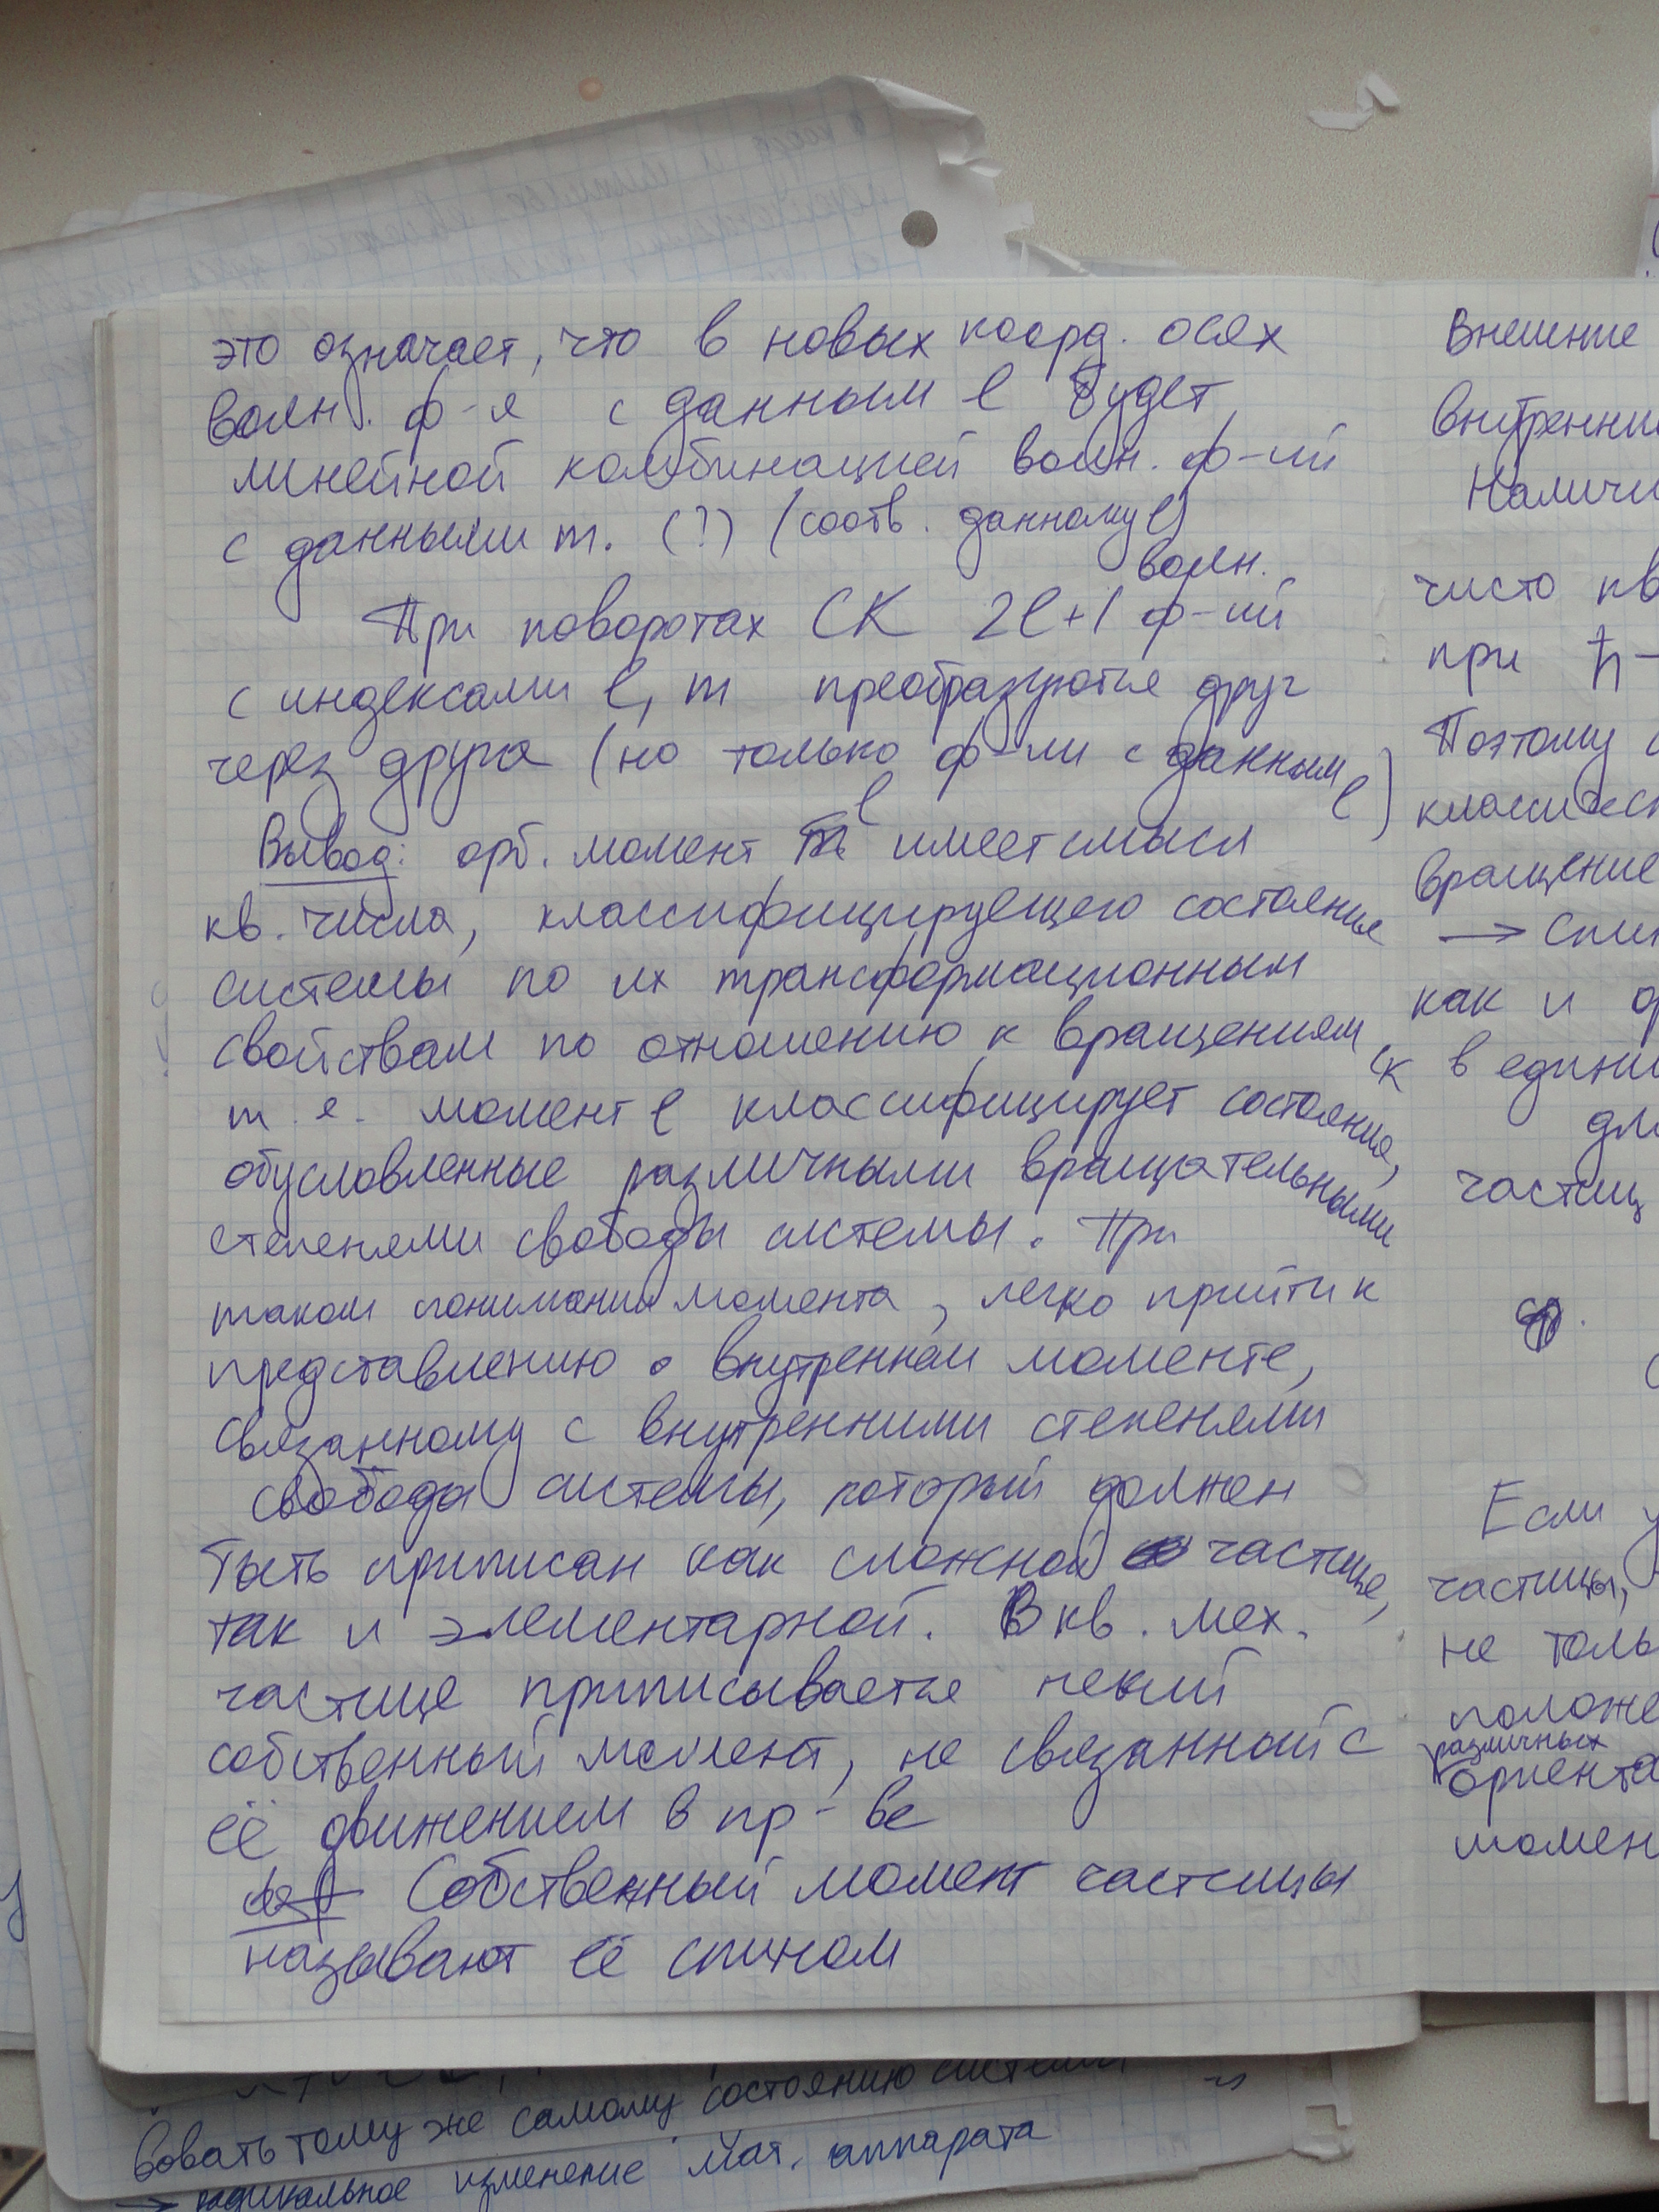 это означает, что в новых коорд. осях
волн. ф-я с данным l будет
линейной комбинацией волн. ф-ий
с данными m. (!) (соотв. данному l)
волн.
При поворотах СК 2l+1 ф-ий
с индексами l, m преобразуются друг
через друга (но только ф-ии с данным l)
l
Вывод: орб. момент имеет смысл
кв. числа, классифицирующего состояния
системы по их трансформационным
свойствам по отношению к вращениям СК
т.е. момент l классифицирует состояния,
обусловленные различными вращательными
степенями свободы системы. При
таком понимании момента, легко прийти к
представлению о внутреннем моменте,
связанному с внутренними степенями
свободы системы, который должен
быть приписан как сложной частице,
так и элементарной. В кв. мех.
частице приписывается некий
собственный момент, не связанный с
её движением в пр-ве
def Собственный момент частицы
называют её спином
Внешние
внутренни
Наличи
чисто кв
при ħ-
Поэтому с
классическ
вращение
→ спин
как и ор
в едини
дл
частиц
Если у
частицы,
не толь
положе
различных
ориента
момен
вовать тому же самому состоянию системы
→ радикальное изменение мат. аппарата